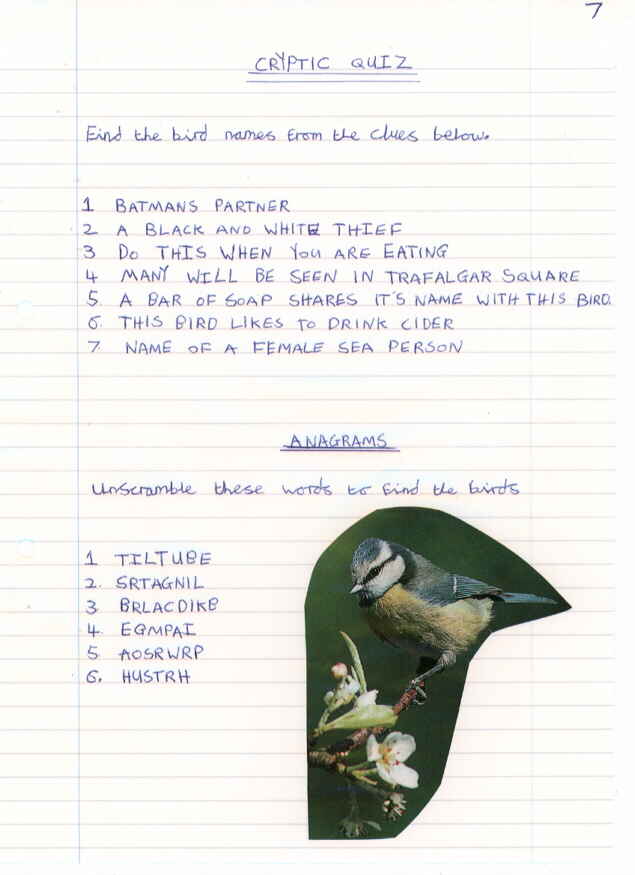 7
CRYPTIC QUIZ
Find the bird names from the clues below.
1 BATMANS PARTNER
2 A BLACK AND WHITE THIEF
3 DO THIS WHEN YOU ARE EATING
4 MANY WILL BE SEEN IN TRAFALGAR SQUARE
5. A BAR OF SOAP SHARES IT'S NAME WITH THIS BIRD.
6. THIS BIRD LIKES TO DRINK CIDER
7. NAME OF A FEMALE SEA PERSON
ANAGRAMS
Unscramble these words to find the birds
1 TILTUBE
2. SRTAGNIL
3 BRLACDIKB
4. EGMPAI
5 AOSRWRP
6. HUSTRH